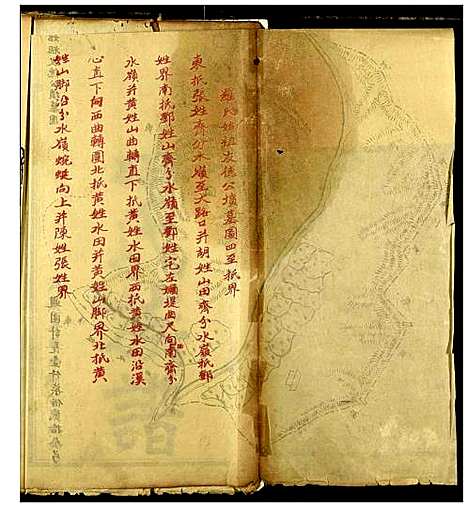 羅氏始祖友德公墳墓圖四至抵界
東抵張姓齊分水嶺至大路口并胡姓山田齊分水嶺抵鄧
姓界南抵鄧姓山齊分水嶺至鄧姓宅左堤曲尺向南齊分
水嶺并黃姓山曲轉直下抵黃姓水田界西抵黃姓水田沿溪
心直下向西曲轉園北抵黃姓水田并黃姓山脚界北抵黃
姓山脚沿分水嶺蜿蜒向上并陳姓張姓界